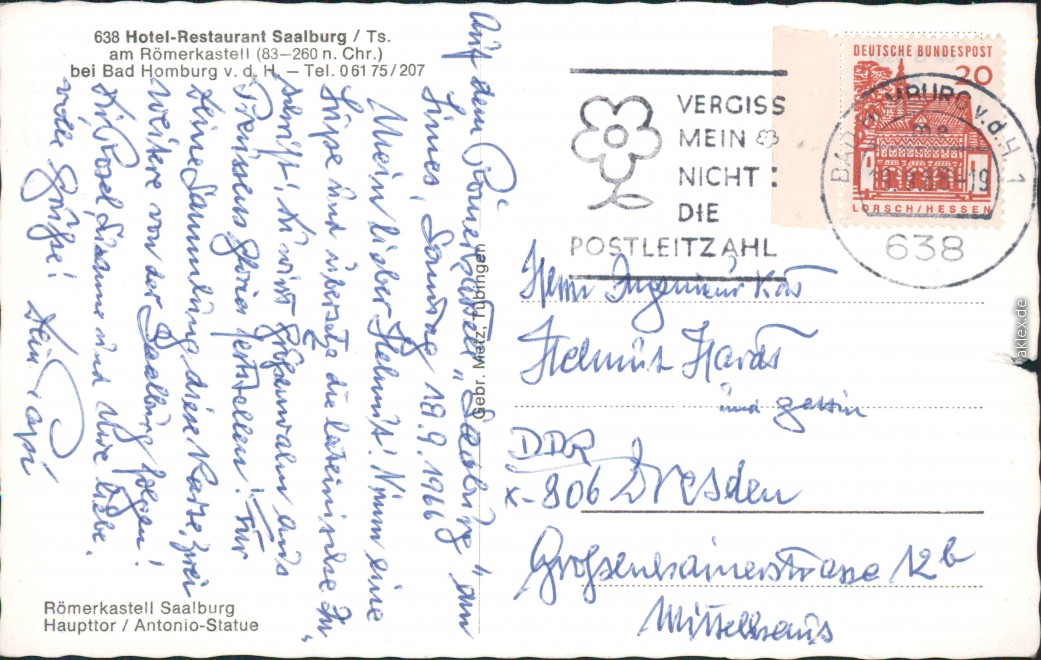 638 Hotel-Restaurant Saalburg / Ts.
am Römerkastell (83–260 n. Chr.)
bei Bad Homburg v. d. H. – Tel. 0 61 75 / 207
Auf dem Römerkastell „Saalburg" am
Limes, Sonntag 18.9.1966
Mein lieber Helmut! Nimm eine
Lupe und übersetze die lateinische In-
schrift! Du wirst Größenwahn aus
Preussens Gloria feststellen! Für
Deine Sammlung diese Karte, zwei
weitere von der Saalburg folgen!
Dir, Rosel, Susanne und
viele Grüße! Dein Papi
Römerkastell Saalburg
Haupttor / Antonio-Statue
Gebr. Metz, Tübingen
VERGISS
MEIN
NICHT :
DIE
POSTLEITZAHL
DEUTSCHE BUNDESPOST
20
LORSCH/HESSEN
BAD HOMBURG v.d.H. 1
638
Herrn Ingenieur
Helmut
und Gattin
DDR
X-806 Dresden
Großenhainerstrasse 12b
Mittelhaus
aklex.de